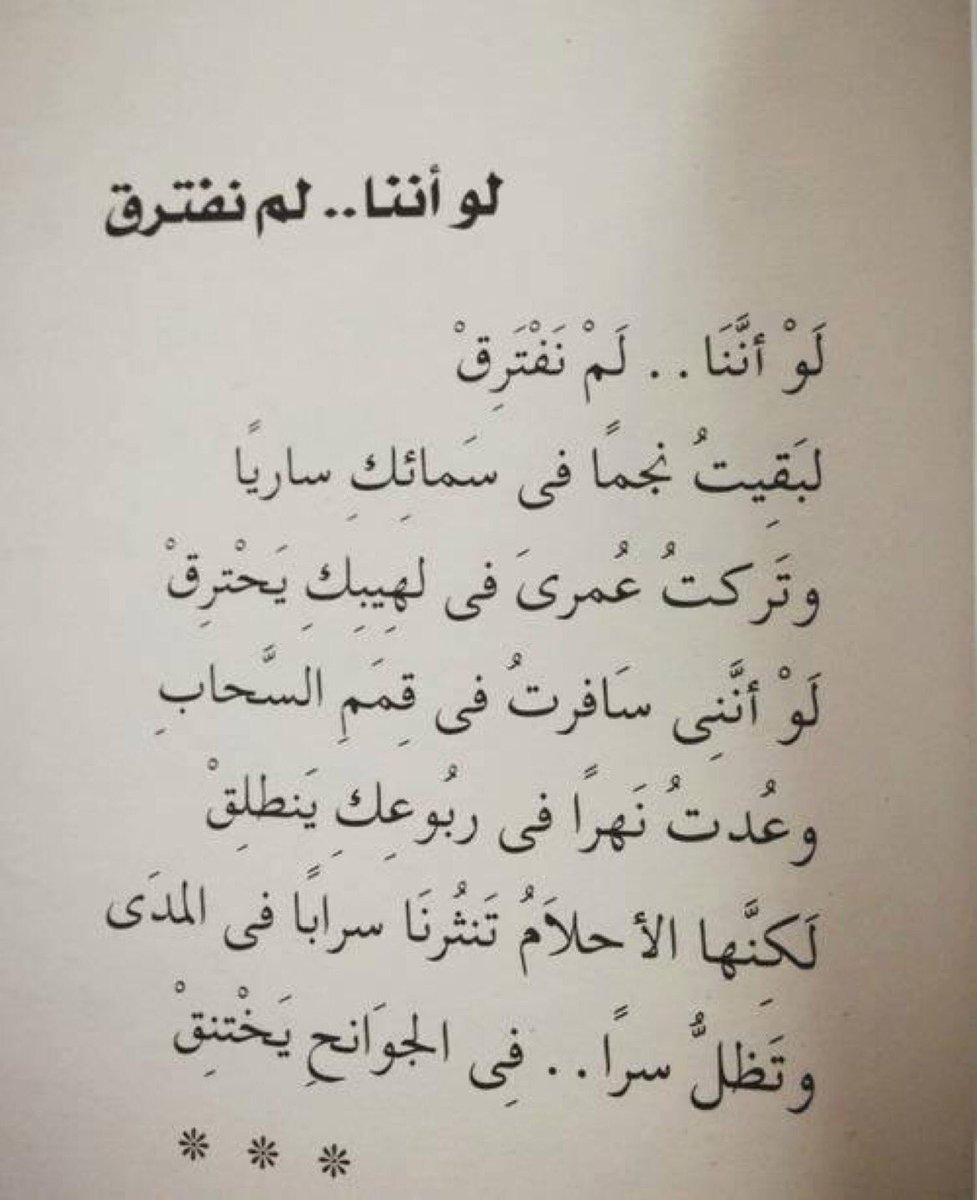 لو أننا.. لم نفترق
لَوْ أنَّنَا.. لَمْ نَفْتَرِقْ
لبَقِيتُ نجمًا فى سَمائِكِ ساريًا
وتَركتُ عُمرىَ فى لهِيبِكِ يَحْترِقْ
لَوْ أنَّنِى سَافرتُ فى قِمَمِ السَّحابِ
وعُدتُ نَهرًا فى ربُوعِكِ يَنطلِقْ
لَكِنَّها الأحلاَمُ تَنثُرنَا سرابًا فى المدَى
وتَظلُّ سرًا.. فِى الجوَانحِ يَخْتنِقْ
❊ ❊ ❊